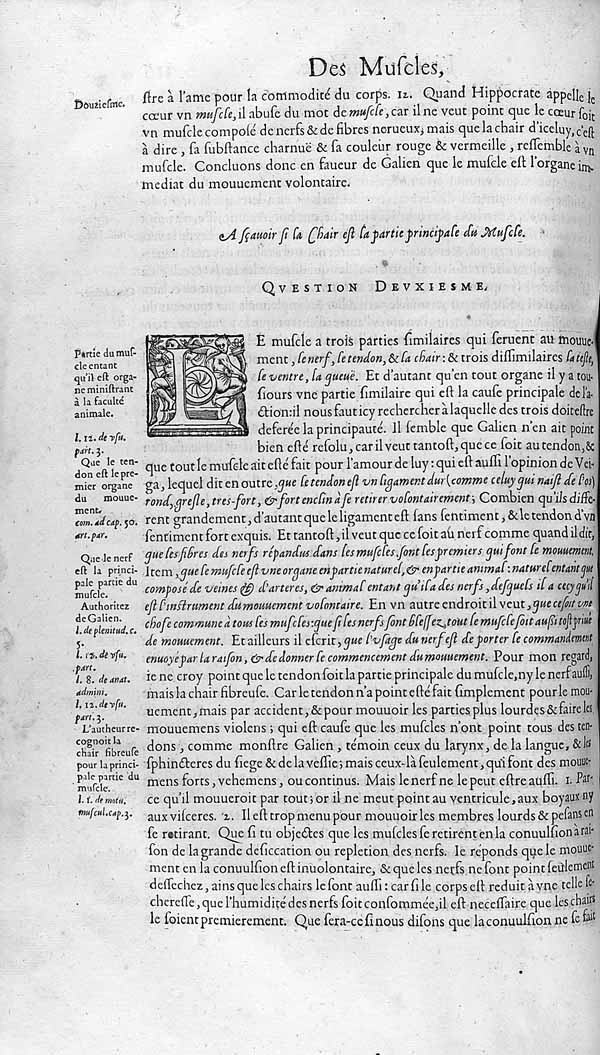 Des Muſcles,
Douzieſme.
ſtre à l'ame pour la commodité du corps. 12. Quand Hippocrate appelle le
cœur vn muſcle, il abuſe du mot de muſcle, car il ne veut point que le cœur ſoit
vn muſcle compoſé de nerfs & de fibres nerueux, mais que la chair d'iceluy, c'eſt
à dire, ſa ſubſtance charnuë & ſa couleur rouge & vermeille, reſſemble à vn
muſcle. Concluons donc en faueur de Galien que le muſcle eſt l'organe im-
mediat du mouuement volontaire.
A ſçauoir ſi la Chair eſt la partie principale du Muſcle.
QVESTION DEVXIESME.
LE muſcle a trois parties ſimilaires qui ſeruent au mouue-
ment, le nerf, le tendon, & la chair: & trois diſſimilaires la teſte,
le ventre, la queuë. Et d'autant qu'en tout organe il y a tou-
ſiours vne partie ſimilaire qui eſt la cauſe principale de l'a-
ction: il nous faut icy rechercher à laquelle des trois doit eſtre
deferée la principauté. Il ſemble que Galien n'en ait point
bien eſté reſolu, car il veut tantoſt, que ce ſoit au tendon, &
que tout le muſcle ait eſté fait pour l'amour de luy: qui eſt auſſi l'opinion de Vei-
ga, lequel dit en outre, que le tendon eſt vn ligament dur (comme celuy qui naiſt de l'os)
rond, greſle, tres-fort, & fort enclin à ſe retirer volontairement; Combien qu'ils diffe-
rent grandement, d'autant que le ligament eſt ſans ſentiment, & le tendon d'vn
ſentiment fort exquis. Et tantoſt, il veut que ce ſoit au nerf comme quand il dit,
que les fibres des nerfs répandus dans les muſcles, ſont les premiers qui font le mouuement.
Item, que le muſcle eſt vne organe en partie naturel, & en partie animal: naturel entant que
compoſé de veines & d'arteres, & animal entant qu'il a des nerfs, deſquels il a cecy qu'il
eſt l'inſtrument du mouuement volontaire. En vn autre endroit il veut, que ce ſoit vne
choſe commune à tous les muſcles: que ſi les nerfs ſont bleſſez, tout le muſcle ſoit auſſi toſt priué
de mouuement. Et ailleurs il eſcrit, que l'vſage du nerf eſt de porter le commandement
enuoyé par la raiſon, & de donner le commencement du mouuement. Pour mon regard,
ie ne croy point que le tendon ſoit la partie principale du muſcle, ny le nerf auſſi,
mais la chair fibreuſe. Car le tendon n'a point eſté fait ſimplement pour le mou-
uement, mais par accident, & pour mouuoir les parties plus lourdes & faire les
mouuemens violens; qui eſt cauſe que les muſcles n'ont point tous des ten-
dons, comme monſtre Galien, témoin ceux du larynx, de la langue, & les
ſphincteres du ſiege & de la veſſie; mais ceux-là ſeulement, qui font des mouue-
mens forts, vehemens, ou continus. Mais le nerf ne le peut eſtre auſſi. 1. Par-
ce qu'il mouueroit par tout; or il ne meut point au ventricule, aux boyaux ny
aux viſceres. 2. Il eſt trop menu pour mouuoir les membres lourds & peſans en
ſe retirant. Que ſi tu objectes que les muſcles ſe retirent en la conuulſion à rai-
ſon de la grande deſiccation ou repletion des nerfs. Ie réponds que le mouue-
ment en la conuulſion eſt inuolontaire, & que les nerfs ne ſont point ſeulement
deſſechez, ains que les chairs le ſont auſſi: car ſi le corps eſt reduit à vne telle ſe-
chereſſe, que l'humidité des nerfs ſoit conſommée, il eſt neceſſaire que les chairs
le ſoient premierement. Que ſera-ce ſi nous diſons que la conuulſion ne ſe fait
Partie du muſ-
cle entant
qu'il eſt orga-
ne miniſtrant
à la faculté
animale.
l. 12. de vſu.
part. 3.
Que le ten-
don eſt le pre-
mier organe
du mouue-
ment.
com. ad cap. 50.
art. par.
Que le nerf
eſt la princi-
pale partie du
muſcle.
Authoritez
de Galien.
l. de plenitud. c.
5.
l. 12. de vſu.
part.
l. 8. de anat.
admini.
l. 12. de vſu.
part. 3.
L'autheur re-
cognoit la
chair fibreuſe
pour la princi-
pale partie du
muſcle.
l. 1. de motu.
muſcul. cap. 3.